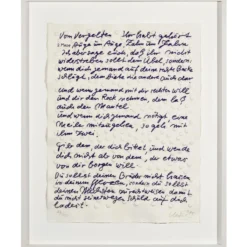 Vom Vergelten Ihr habt gehört
Auge um Auge, Zahn um Zahn
Ich aber sage euch, daß ihr nicht
widerstreben sollt dem Übel, sondern
wenn dich jemand auf deine rechte Backe
schlägt, dem biete die andere auch dar
und wenn jemand mit dir rechten will
und dir den Rock nehmen, dem laß
auch den Mantel
und wenn dich jemand nötigt, eine
Meile mitzugehen, so geh mit
ihm zwei.
Gib dem, der dich bittet, und wende
dich nicht ab von dem, der etwas
von dir borgen will
Du sollst deinen Bruder nicht
in deinem Herzen, sondern du sollst
deinen Nächsten zurechtweisen, damit
du nicht seinetwegen Schuld auf dich
ladest.